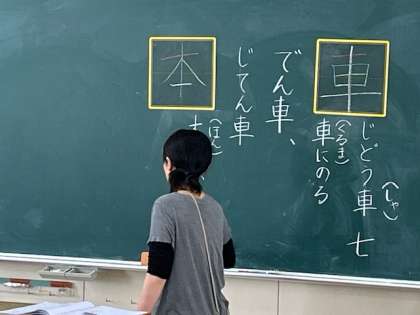 車 七
(しゃ)
じどう車
(くるま)
車にのる
でん車、
じてん車
本
(ほん)